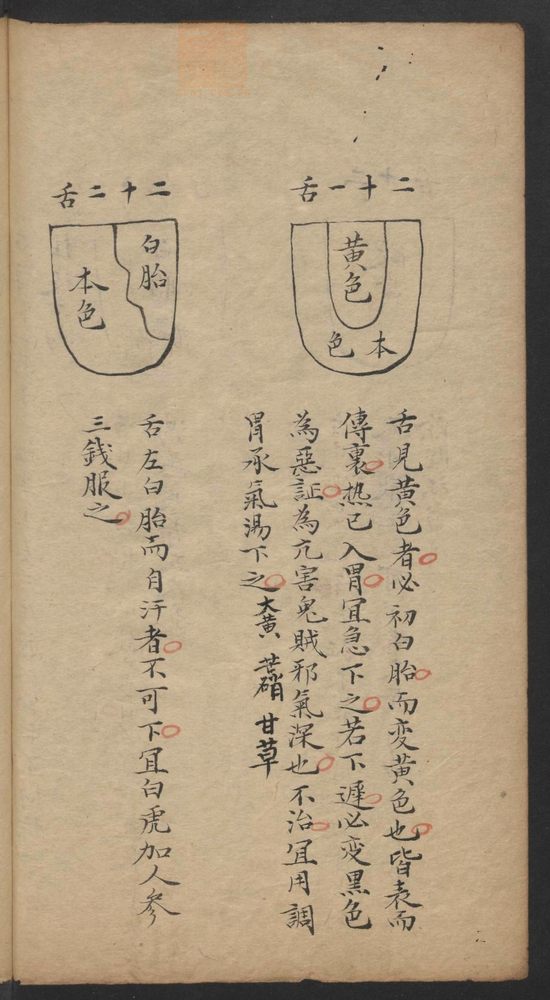 二十一舌
黃色
本色
舌見黃色者必初白胎而变黃色也皆表而
傳裏热已入胃宜急下之若下遲必变黑色
為惡証為亢害鬼賊邪氣深也不治宜用調
胃承氣湯下之大黄 芒硝 甘草
二十二舌
白胎
本色
舌左白胎而自汗者不可下宜白虎加人參
三錢服之